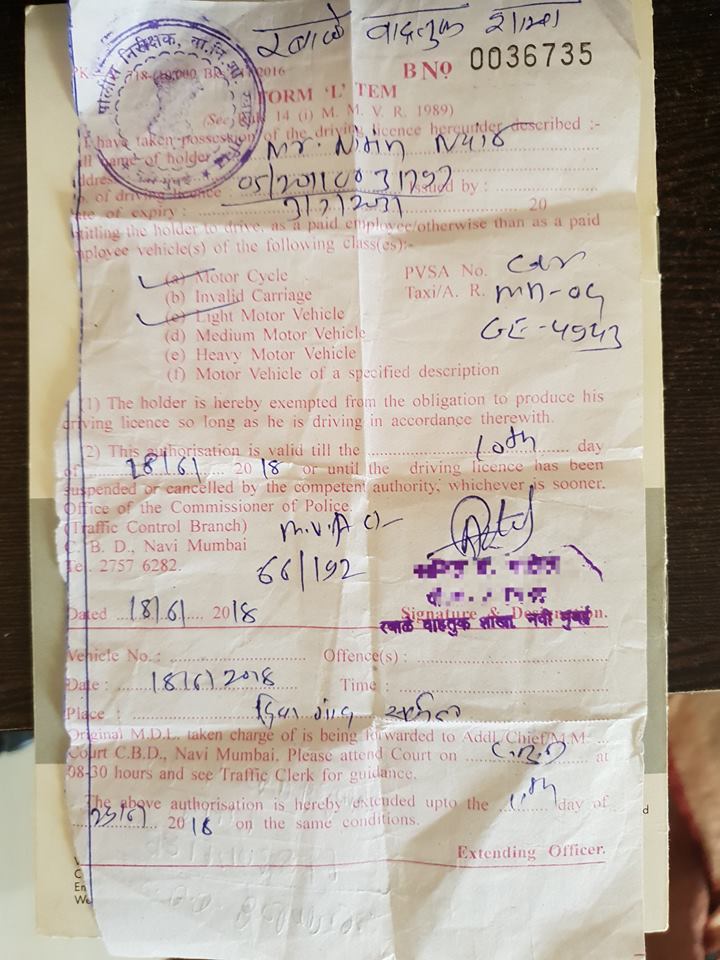 रबाळे वाहतुक शाखा
पोलीस निरीक्षक, वा.नि.
नवी मुंबई
2016
B No 0036735
FORM 'L' TEM
(See 14 (i) M. M. V. R. 1989)
I have taken possession of the driving licence hereunder described :-
name of holder Mr. Nitin
of driving licence Issued by :
of expiry : 20
the holder to drive, as a paid employee/otherwise than as a paid
vehicle(s) of the following class(es):-
(a) Motor Cycle PVSA No. Car
(b) Invalid Carriage Taxi/A. R. MH-04
(c) Light Motor Vehicle GE-4943
(d) Medium Motor Vehicle
(e) Heavy Motor Vehicle
(f) Motor Vehicle of a specified description
(1) The holder is hereby exempted from the obligation to produce his
driving licence so long as he is driving in accordance therewith.
(2) This authorisation is valid till the 10th day
of 18/6/ 2018 or until the driving licence has been
suspended or cancelled by the competent authority, whichever is sooner.
Office of the Commissioner of Police.
(Traffic Control Branch) M.V.A
C. B. D., Navi Mumbai
Tel. 2757 6282. 66/192
Dated 18/6/ 2018 Signature & Designation.
रबाळे वाहतुक शाखा नवी मुंबई
Vehicle No. : Offence(s) :
Date : 18/6/2018 Time :
Place :
Original M.D.L. taken charge of is being forwarded to Addl./Chief/M.M.
Court C.B.D., Navi Mumbai. Please attend Court on C.B.D at
08-30 hours and see Traffic Clerk for guidance.
The above authorisation is hereby extended upto the day of
2018 on the same conditions.
Extending Officer.